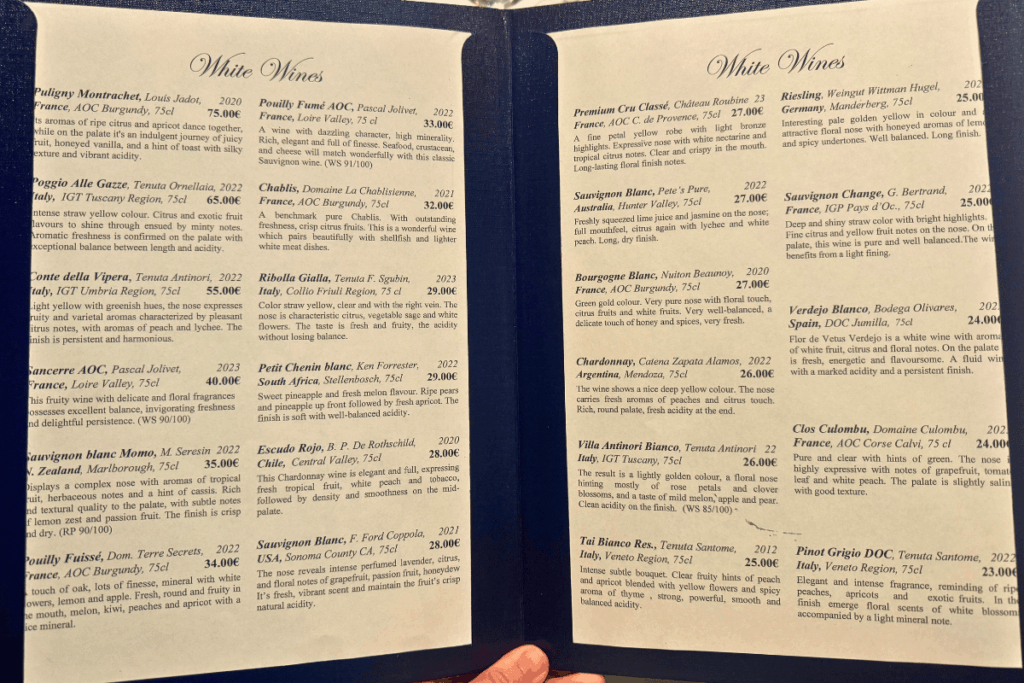 White Wines
Puligny Montrachet, Louis Jadot, 2020
France, AOC Burgundy, 75cl 75.00€
Its aromas of ripe citrus and apricot dance together,
while on the palate it's an indulgent journey of juicy
fruit, honeyed vanilla, and a hint of toast with silky
texture and vibrant acidity.
Poggio Alle Gazze, Tenuta Ornellaia, 2022
Italy, IGT Tuscany Region, 75cl 65.00€
Intense straw yellow colour. Citrus and exotic fruit
flavours to shine through ensued by minty notes.
Aromatic freshness is confirmed on the palate with
exceptional balance between length and acidity.
Conte della Vipera, Tenuta Antinori, 2022
Italy, IGT Umbria Region, 75cl 55.00€
Light yellow with greenish hues, the nose expresses
fruity and varietal aromas characterized by pleasant
citrus notes, with aromas of peach and lychee. The
finish is persistent and harmonious.
Sancerre AOC, Pascal Jolivet, 2023
France, Loire Valley, 75cl 40.00€
This fruity wine with delicate and floral fragrances
possesses excellent balance, invigorating freshness
and delightful persistence. (WS 90/100)
Sauvignon blanc Momo, M. Seresin 2022
N. Zealand, Marlborough, 75cl 35.00€
Displays a complex nose with aromas of tropical
fruit, herbaceous notes and a hint of cassis. Rich
and textural quality to the palate, with subtle notes
of lemon zest and passion fruit. The finish is crisp
and dry. (RP 90/100)
Pouilly Fuissé, Dom. Terre Secrets, 2022
France, AOC Burgundy, 75cl 34.00€
A touch of oak, lots of finesse, mineral with white
flowers, lemon and apple. Fresh, round and fruity in
the mouth, melon, kiwi, peaches and apricot with a
nice mineral.
Pouilly Fumé AOC, Pascal Jolivet, 2022
France, Loire Valley, 75 cl 33.00€
A wine with dazzling character, high minerality.
Rich, elegant and full of finesse. Seafood, crustacean,
and cheese will match wonderfully with this classic
Sauvignon wine. (WS 91/100)
Chablis, Domaine La Chablisienne, 2021
France, AOC Burgundy, 75cl 32.00€
A benchmark pure Chablis. With outstanding
freshness, crisp citrus fruits. This is a wonderful wine
which pairs beautifully with shellfish and lighter
white meat dishes.
Ribolla Gialla, Tenuta F. Sgubin, 2023
Italy, Collio Friuli Region, 75 cl 29.00€
Color straw yellow, clear and with the right vein. The
nose is characteristic citrus, vegetable sage and white
flowers. The taste is fresh and fruity, the acidity
without losing balance.
Petit Chenin blanc, Ken Forrester, 2022
South Africa, Stellenbosch, 75cl 29.00€
Sweet pineapple and fresh melon flavour. Ripe pears
and pineapple up front followed by fresh apricot. The
finish is soft with well-balanced acidity.
Escudo Rojo, B. P. De Rothschild, 2020
Chile, Central Valley, 75cl 28.00€
This Chardonnay wine is elegant and full, expressing
fresh tropical fruit, white peach and tobacco,
followed by density and smoothness on the mid-
palate.
Sauvignon Blanc, F. Ford Coppola, 2021
USA, Sonoma County CA, 75cl 28.00€
The nose reveals intense perfumed lavender, citrus,
and floral notes of grapefruit, passion fruit, honeydew
It's fresh, vibrant scent and maintain the fruit's crisp
natural acidity.
White Wines
Premium Cru Classé, Château Roubine 23
France, AOC C. de Provence, 75cl 27.00€
A fine petal yellow robe with light bronze
highlights. Expressive nose with white nectarine and
tropical citrus notes. Clear and crispy in the mouth.
Long-lasting floral finish notes.
Sauvignon Blanc, Pete's Pure, 2022
Australia, Hunter Valley, 75cl 27.00€
Freshly squeezed lime juice and jasmine on the nose;
full mouthfeel, citrus again with lychee and white
peach. Long, dry finish.
Bourgogne Blanc, Nuiton Beaunoy, 2020
France, AOC Burgundy, 75cl 27.00€
Green gold colour. Very pure nose with floral touch,
citrus fruits and white fruits. Very well-balanced, a
delicate touch of honey and spices, very fresh.
Chardonnay, Catena Zapata Alamos, 2022
Argentina, Mendoza, 75cl 26.00€
The wine shows a nice deep yellow colour. The nose
carries fresh aromas of peaches and citrus touch.
Rich, round palate, fresh acidity at the end.
Villa Antinori Bianco, Tenuta Antinori 22
Italy, IGT Tuscany, 75cl 26.00€
The result is a lightly golden colour, a floral nose
hinting mostly of rose petals and clover
blossoms, and a taste of mild melon, apple and pear.
Clean acidity on the finish. (WS 85/100)
Tai Bianco Res., Tenuta Santome, 2012
Italy, Veneto Region, 75cl 25.00€
Intense subtle bouquet. Clear fruity hints of peach
and apricot blended with yellow flowers and spicy
aroma of thyme , strong, powerful, smooth and
balanced acidity.
Riesling, Weingut Wittman Hugel,
Germany, Manderberg, 75cl 25.00
Interesting pale golden yellow in colour and
attractive floral nose with honeyed aromas of
and spicy undertones. Well balanced. Long finish.
Sauvignon Change, G. Bertrand, 2022
France, IGP Pays d'Oc., 75cl 25.00€
Deep and shiny straw color with bright highlights.
Fine citrus and yellow fruit notes on the nose. On
palate, this wine is pure and well balanced.The
benefits from a light fining.
Verdejo Blanco, Bodega Olivares,
Spain, DOC Jumilla, 75cl 24.00€
Flor de Vetus Verdejo is a white wine with
of white fruit, citrus and floral notes. On the palate
is fresh, energetic and flavoursome. A fluid
with a marked acidity and a persistent finish.
Clos Culombu, Domaine Culombu,
France, AOC Corse Calvi, 75 cl 24.00€
Pure and clear with hints of green. The nose
highly expressive with notes of grapefruit,
leaf and white peach. The palate is slightly
with good texture.
Pinot Grigio DOC, Tenuta Santome, 2022
Italy, Veneto Region, 75cl 23.00€
Elegant and intense fragrance, reminding of
peaches, apricots and exotic fruits. In
finish emerge floral scents of white blossom
accompanied by a light mineral note.